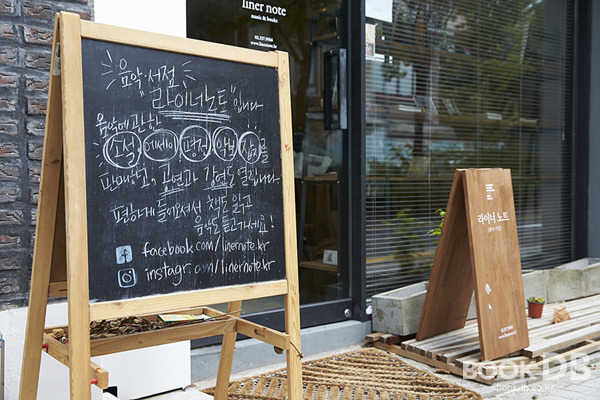 liner note
music & books
음악·서점
"라이너노트"입니다.
음악에 관한
소설 에세이 평전 악보 잡지를
판매하고, 공연과 강연도 열립니다.
편하게 들어오셔서 책도 읽고
음악도 듣고 가세요!
facebook.com/linernote.kr
instagr.am/linernote.kr
라이너 노트
BOOKDB